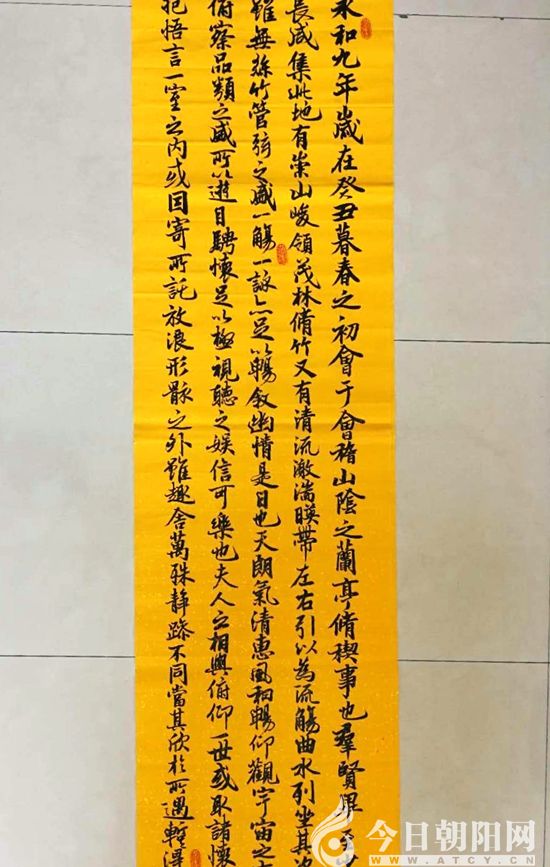 永和九年歲在癸丑暮春之初會于會稽山陰之蘭亭脩稧事也羣賢畢至少
長咸集此地有崇山峻領茂林脩竹又有清流激湍暎帶左右引以為流觴曲水列坐其次
雖無絲竹管弦之盛一觴一詠亦足以暢敘幽情是日也天朗氣清惠風和暢仰觀宇宙之大
俯察品類之盛所以遊目騁懷足以極視聽之娛信可樂也夫人之相與俯仰一世或取諸懷
抱悟言一室之內或因寄所託放浪形骸之外雖趣舍萬殊靜躁不同當其欣於所遇暫得
今日朝阳网
WWW.ATCY.CN